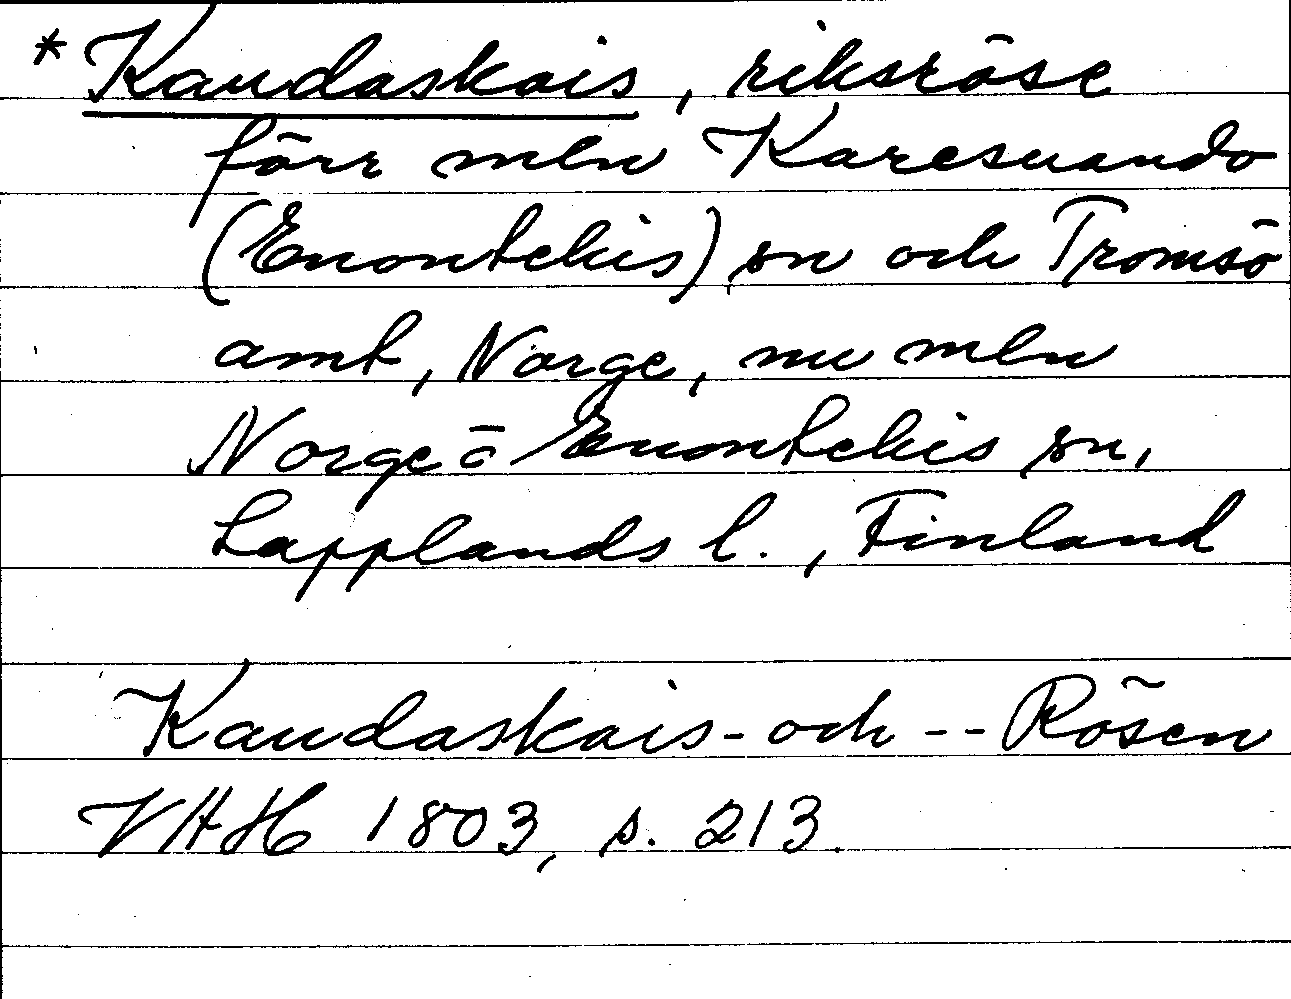 * Kaudaskais, riksröse
förr mln Karesuando
(Enontekis) sn och Tromsö
amt, Norge, nu mln
Norge o Enontekis sn,
Lapplands l., Finland
Kaudaskais- och -- Rösen
VAH 1803, s. 213.